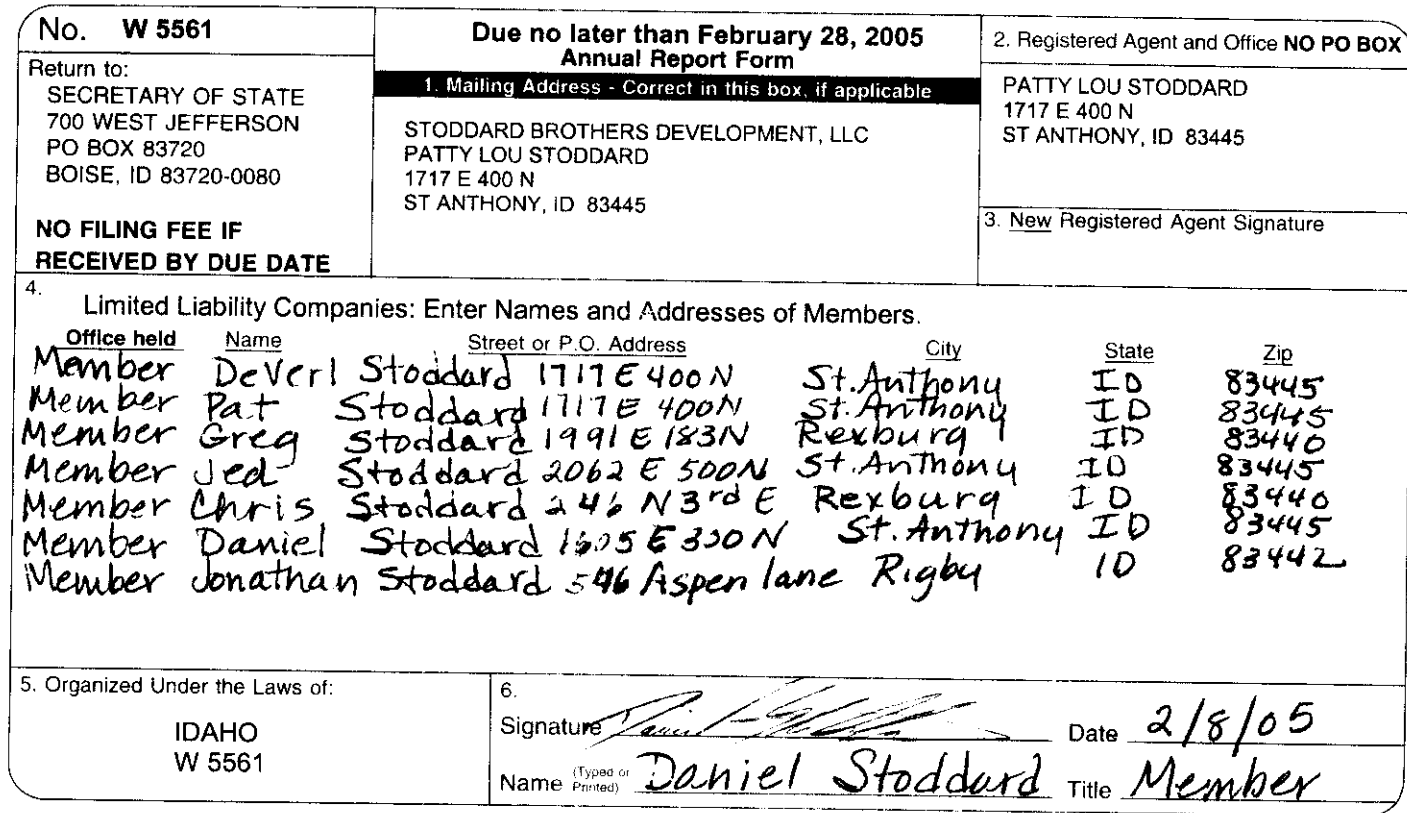 No. W 5561
Return to:
SECRETARY OF STATE
700 WEST JEFFERSON
PO BOX 83720
BOISE, ID 83720-0080
NO FILING FEE IF
RECEIVED BY DUE DATE
Due no later than February 28, 2005
Annual Report Form
1. Mailing Address - Correct in this box, if applicable
STODDARD BROTHERS DEVELOPMENT, LLC
PATTY LOU STODDARD
1717 E 400 N
ST ANTHONY, ID 83445
2. Registered Agent and Office NO PO BOX
PATTY LOU STODDARD
1717 E 400 N
ST ANTHONY, ID 83445
3. New Registered Agent Signature
4.
Limited Liability Companies: Enter Names and Addresses of Members.
Office held Name Street or P.O. Address City State Zip
Member DeVerl Stoddard 1717 E 400 N St. Anthony ID 83445
Member Pat Stoddard 1717 E 400N St. Anthony ID 83445
Member Greg Stoddard 1991 E 183N Rexburg ID 83440
Member Jed Stoddard 2062 E 500N St. Anthony ID 83445
Member Chris Stoddard 246 N 3rd E Rexburg ID 83440
Member Daniel Stoddard E N St. Anthony ID 83445
Member Jonathan Stoddard 546 Aspen lane Rigby ID 83442
5. Organized Under the Laws of:
IDAHO
W 5561
6.
Signature Date 2/8/05
Name (Typed or Printed) Daniel Stoddard Title Member